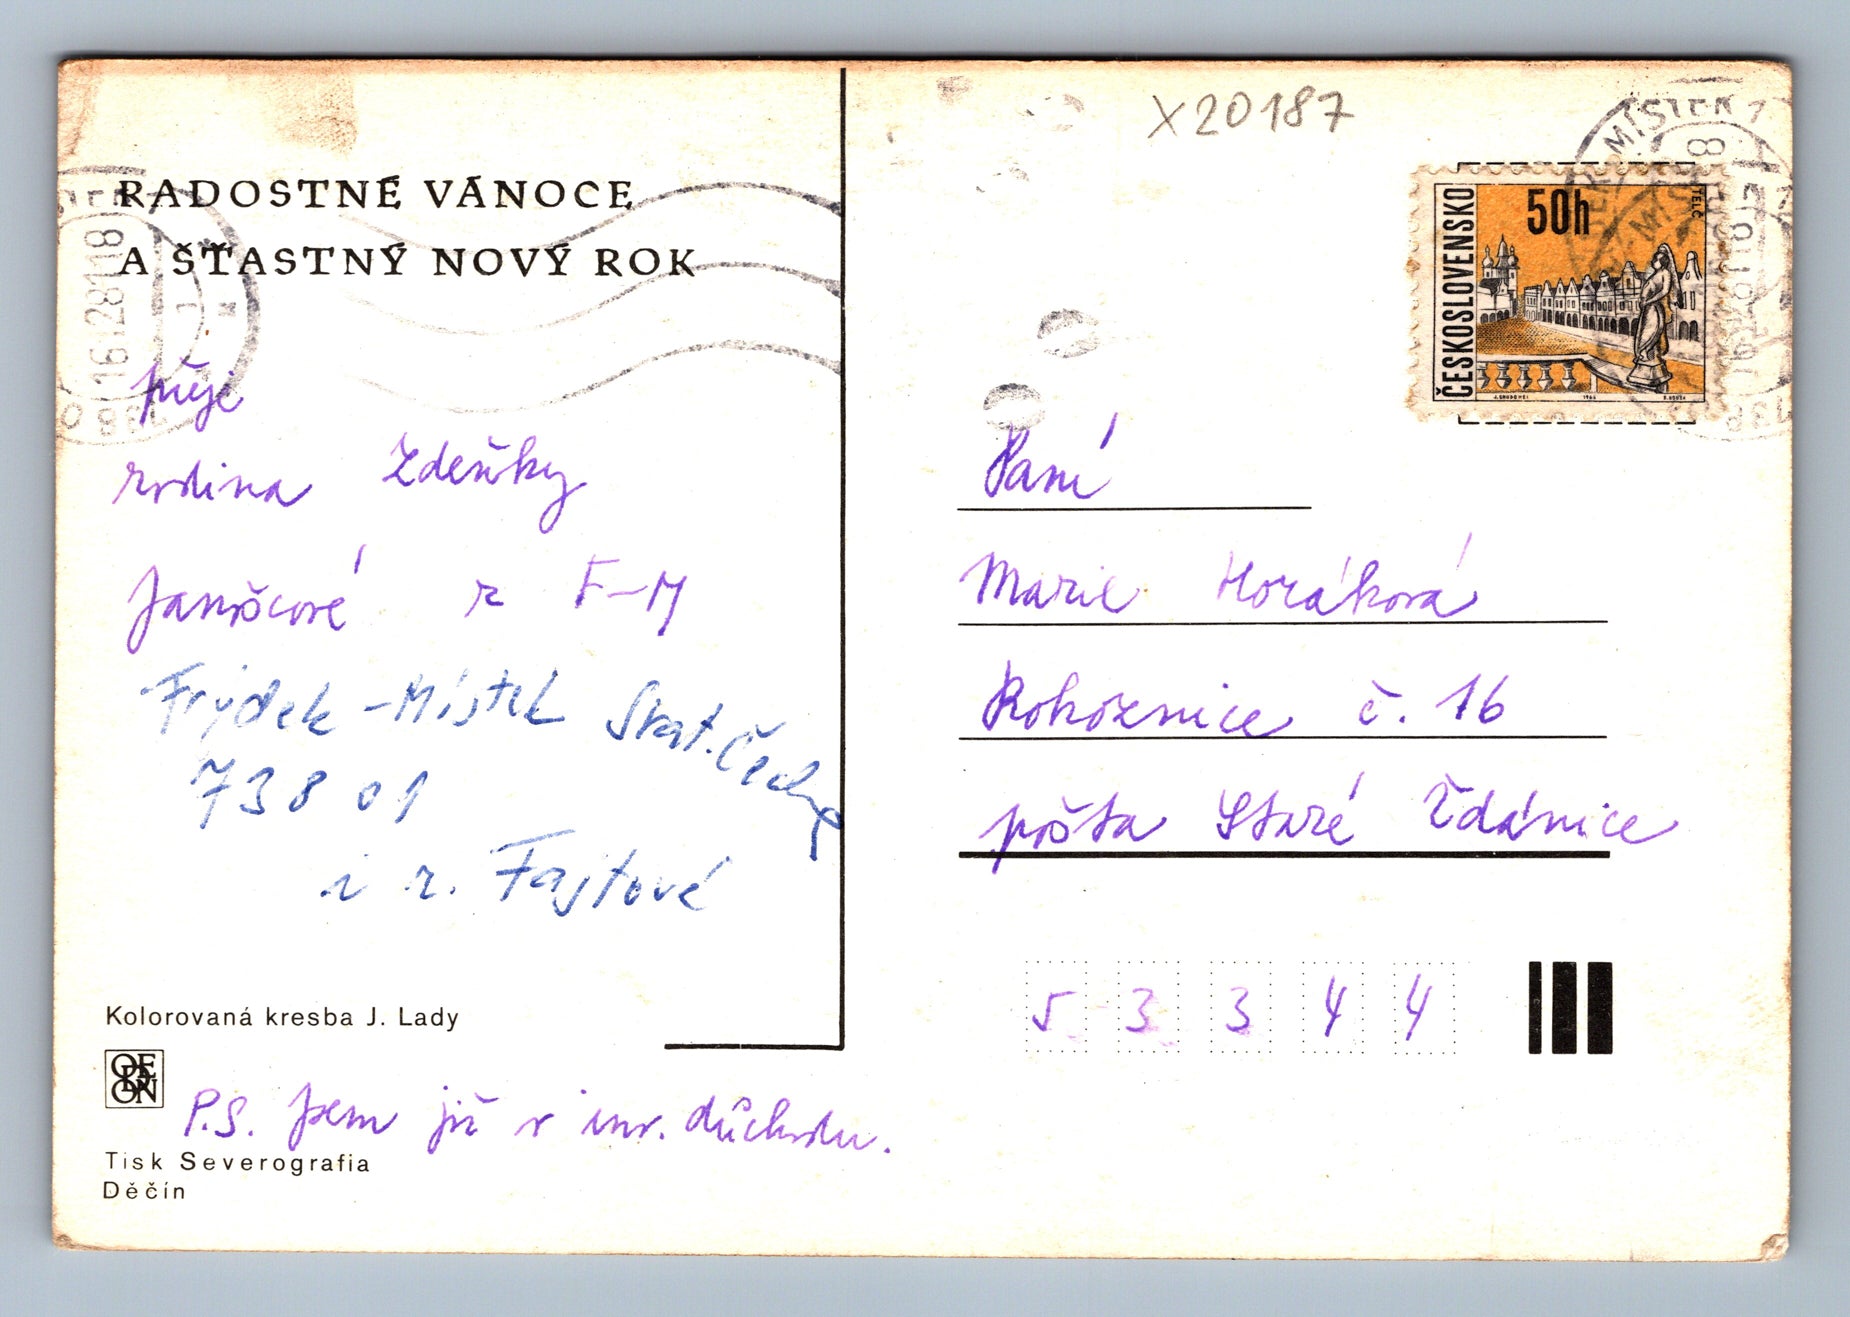 X20187
RADOSTNÉ VÁNOCE
A ŠŤASTNÝ NOVÝ ROK
přeje
rodina Zdeňky
Janošcové z F-M
Frýdek-Místek Skat. Čechy
738 01
i r. Fajtové
Kolorovaná kresba J. Lady
ODEON
P.S. Jsem již v inv. důchodu.
Tisk Severografia
Děčín
ČESKOSLOVENSKO
50h
TELČ
Paní
Marie Horáková
Rohoznice č. 16
pošta Staré Ždánice
5 3 3 4 4